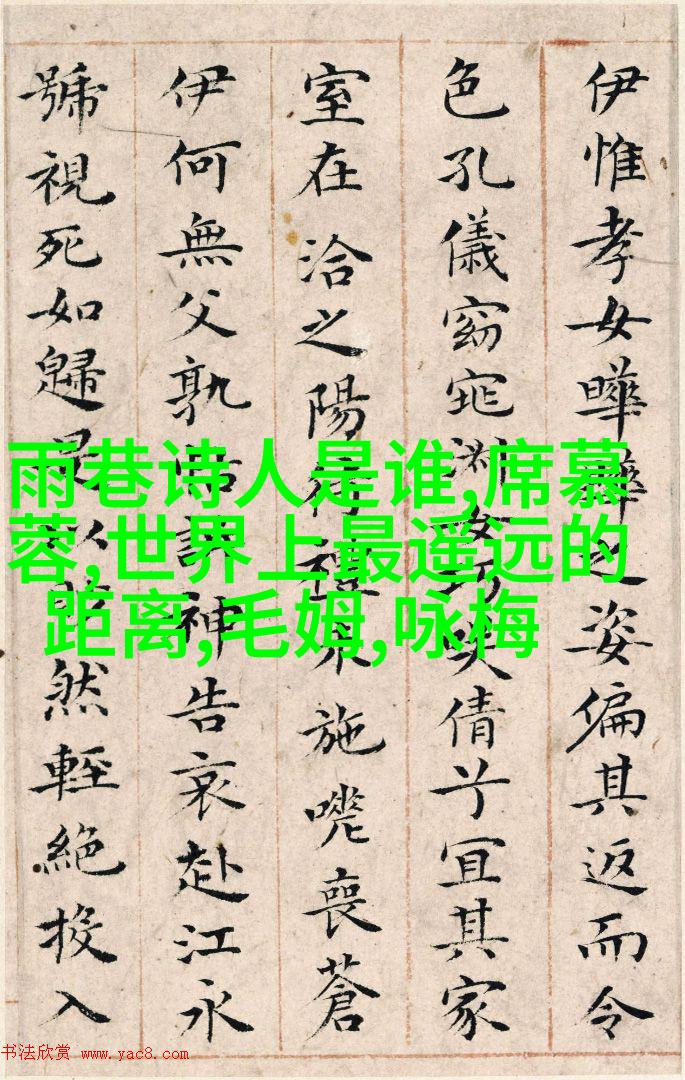 伊惟孝女曄曄之姿偏其返而令
色孔儀窈窕淑女巧咲倩兮宜其家
室在洽之陽待禮未施嗟喪蒼
伊何無父孰怙訴神告哀赴江永
號視死如歸是以眇然輕絕投入
雨巷诗人是谁,席慕
蓉,世界上最遥远的
距离,毛姆,咏梅
书法欣赏 www.yac8.com